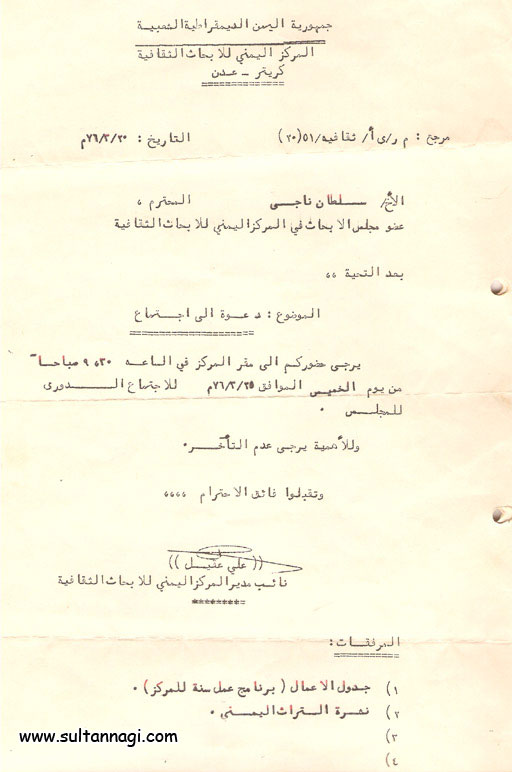 جمهورية اليمن الديمقراطية الشعبية
المركز اليمني للابحاث الثقافية
كريتر - عدن
مرجع : م ر/ي أ/ ثقافيه/٥١(٣٠) التاريخ : ٧٦/٣/٢٠م
الأخ/ سلطان ناجي المحترم ،
عضو مجلس الابحاث في المركز اليمني للابحاث الثقافية
بعد التحية ،،
الموضوع : دعوة الى اجتماع
يرجى حضوركم الى مقر المركز في الساعه ٩،٣٠ صباحاً
من يوم الخميس الموافق ٧٦/٣/٢٥م للاجتماع الدورى
للمجلس .
وللأهمية يرجى عدم التأخر .
وتقبلوا فائق الاحترام ،،،،
((علي عقيل))
نائب مدير المركز اليمني للابحاث الثقافية
********
المرفقات :
١) جدول الاعمال ( برنامج عمل سنة للمركز) .
٢) نشرة التراث اليمني .
٣)
٤)
www.sultannagi.com